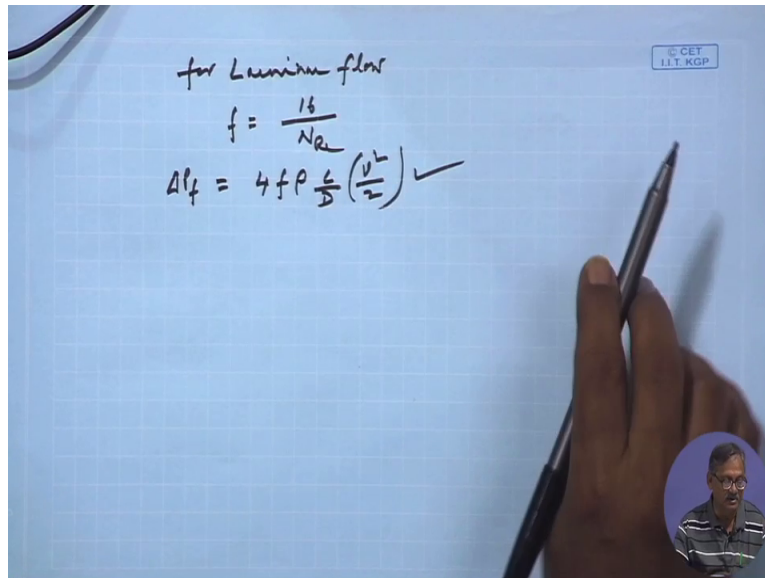 © CET
I.I.T. KGP
for Laminar flow
f = 16 / N_Re
ΔP_f = 4 f ρ L/D (v²/2) ✓